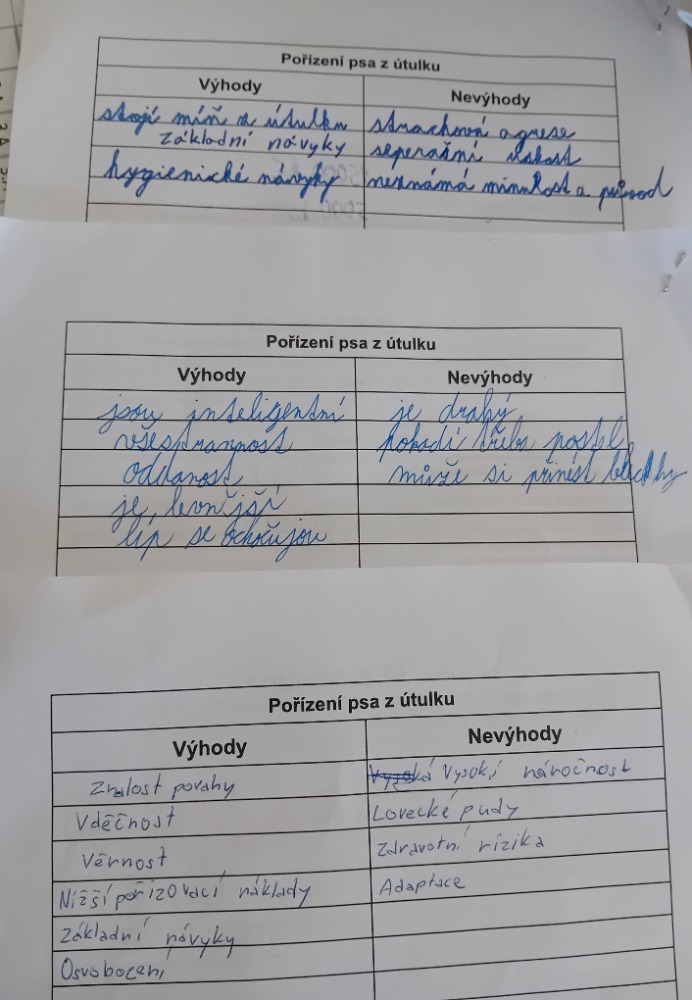 Pořízení psa z útulku
Výhody Nevýhody
stojí míň z útulku strachová agrese
základní návyky seperační úzkost
hygienické návyky neznámá minulost a původ
Pořízení psa z útulku
Výhody Nevýhody
jsou inteligentní je drahý
všestrannost pokadí třeba postel
oddanost může si přinést blechy
je levnější
líp se ochočujou
Pořízení psa z útulku
Výhody Nevýhody
Znalost povahy Vysoká Vysoká náročnost
Vděčnost Lovecké pudy
Věrnost Zdravotní rizika
Nižší pořizovací náklady Adaptace
Základní návyky
Osvobození